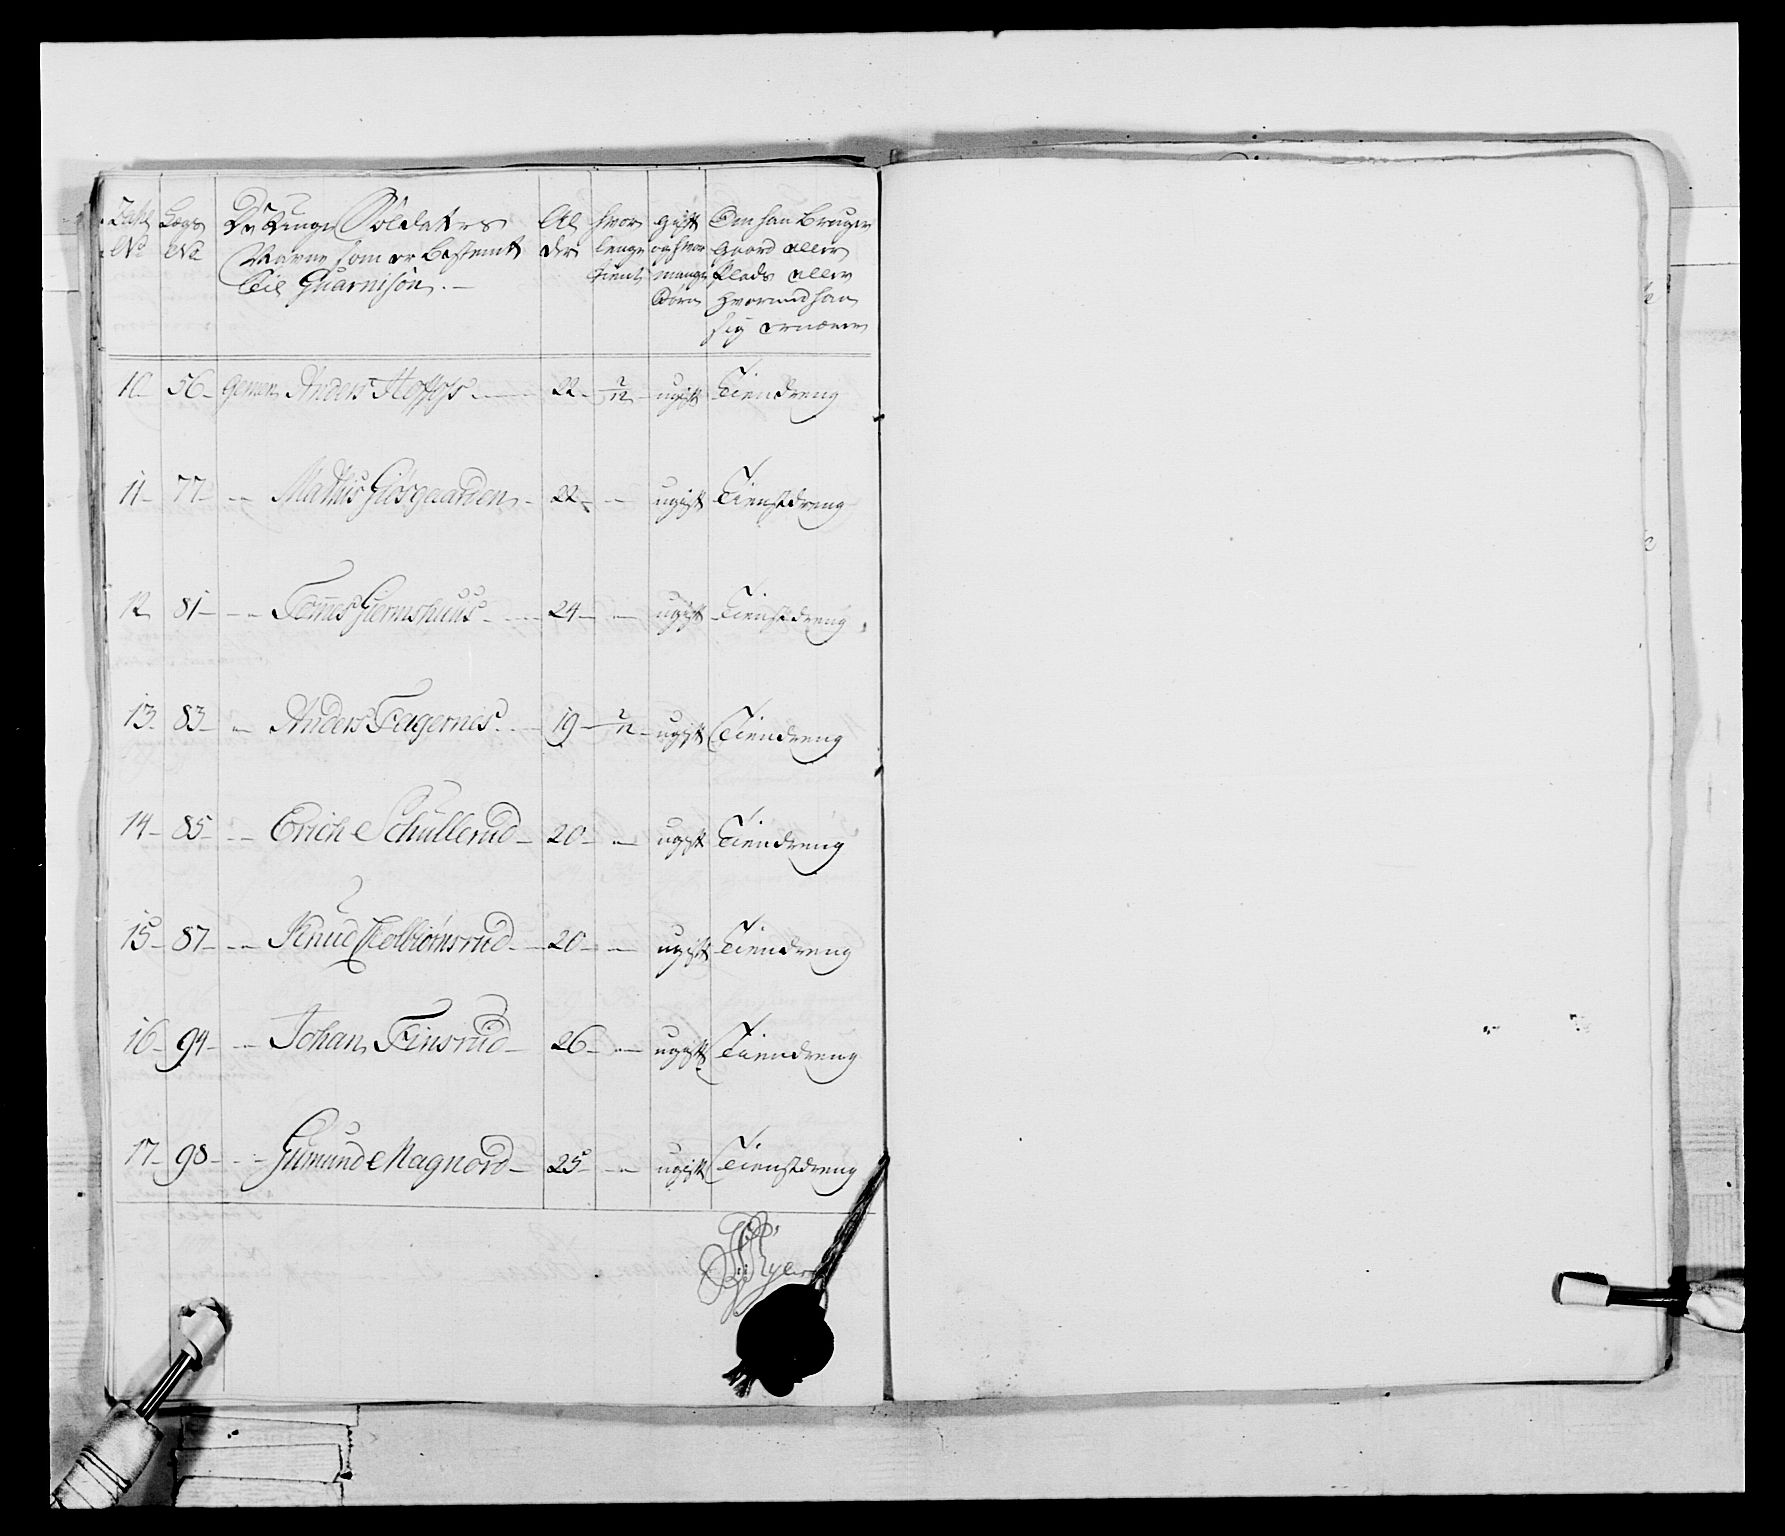 Tahl No | Lægs No | De Unge Soldaters Navne som er bestemt til Guarnison. | Alder | hvor lenge tient | gift og hvor mange Børn | Om han Bruger Gaard eller Plads eller hvormed han sig ernærer
10 56 Gemen Anders Hoffos 22 2/12 ugift Tiendreng
11 77 " Mathis Giosgaarden 22 " ugift Tienstdreng
12 81 " Tomes Giermshuus 24 " ugift Tienstdreng
13 83 " Anders Fagernes 19 2/12 ugift Tiendreng
14 85 " Erich Schullerud 20 " ugift Tiendreng
15 87 " Knud Kolbiørnsrud 20 " ugift Tiendreng
16 94 " Johan Finsrud 26 " ugift Tiendreng
17 98 " Gumund Magnord 25 " ugift Tienstdreng